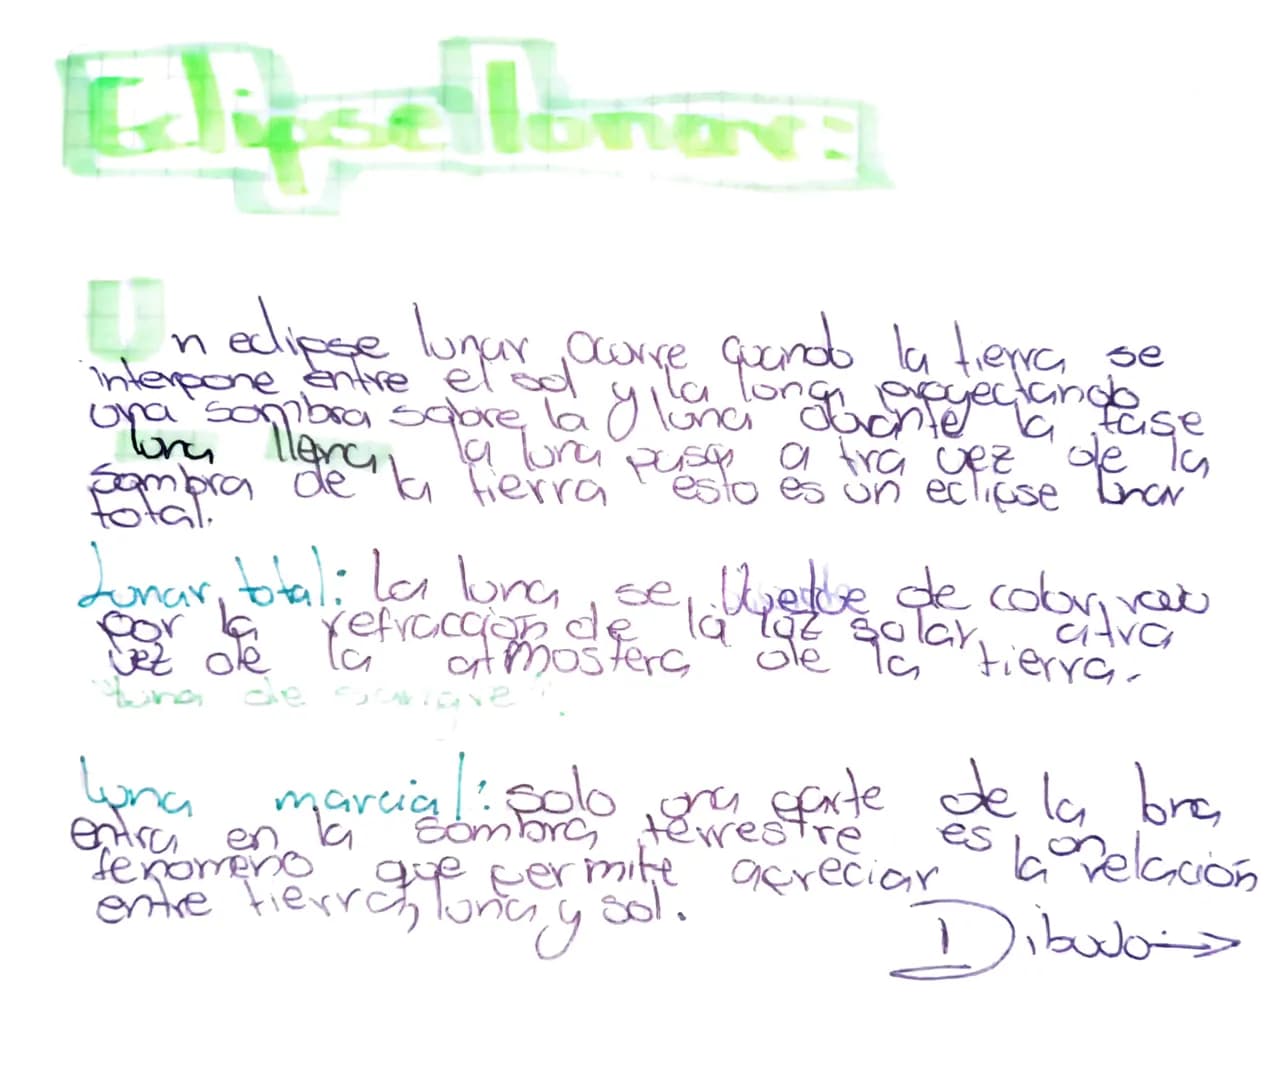 Eclipse lunar:
Un eclipse lunar ocurre cuando la tierra se
interpone entre el sol y la longa proyectando
una sombra sobre la luna durante la fase
luna llena, la luna pasa a tra vez de la
sombra de la tierra esto es un eclipse lunar
total.
Lunar total: La luna se vuelve de color rojo
por la refracción de la luz solar, a tra
vez de la atmosfera de la tierra.
"luna de sangre".
Luna marcial: solo una parte de la luna
entra en la sombra terrestre es un
fenomeno que permite apreciar la relación
entre tierra, luna y sol.
Dibujo→